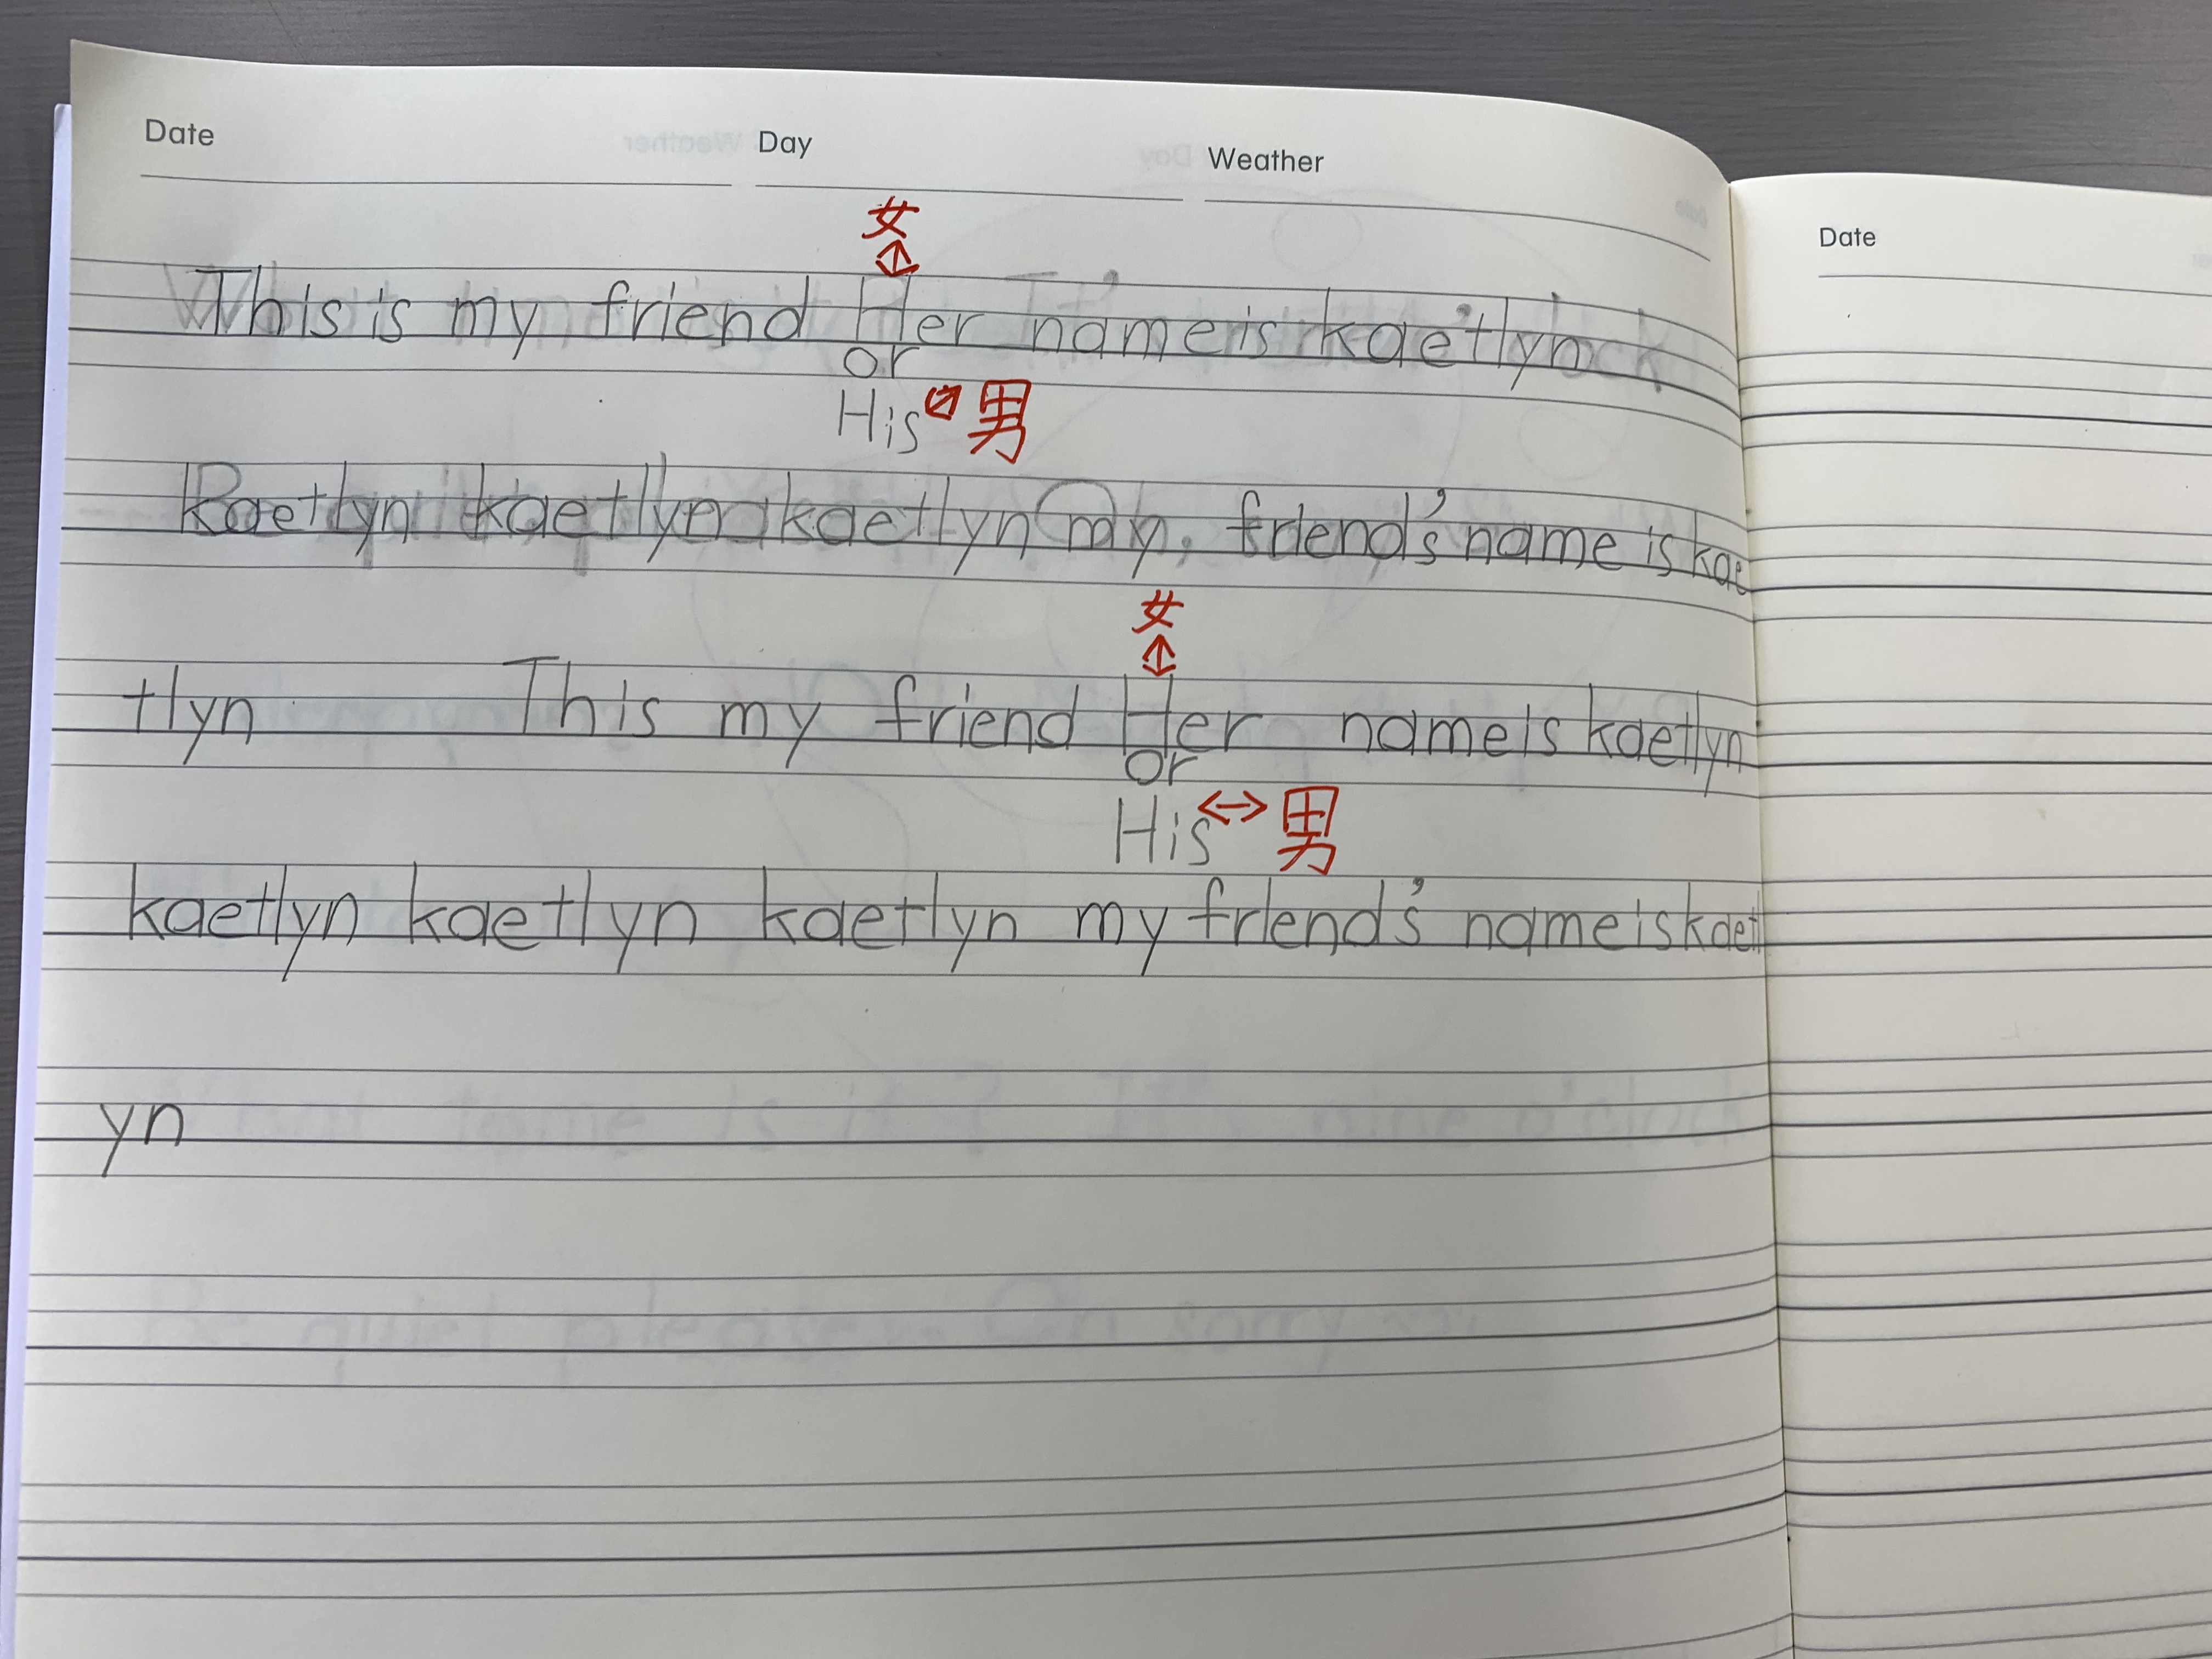 Date Day Weather
女
↕
This is my friend Her name is kaetlyn
or
His ↔ 男
Kaetlyn kaetlyn kaetlyn my friend's name is kae
女
↕
tlyn This my friend Her name is kaetlyn
or
His ↔ 男
kaetlyn kaetlyn kaetlyn my friend's name is kaetl
yn
Date